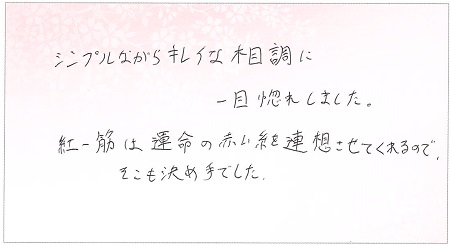 シンプルながらキレイな木目調に
一目惚れしました。
紅一筋は運命の赤い糸を連想させてくれるので、
そこも決め手でした。